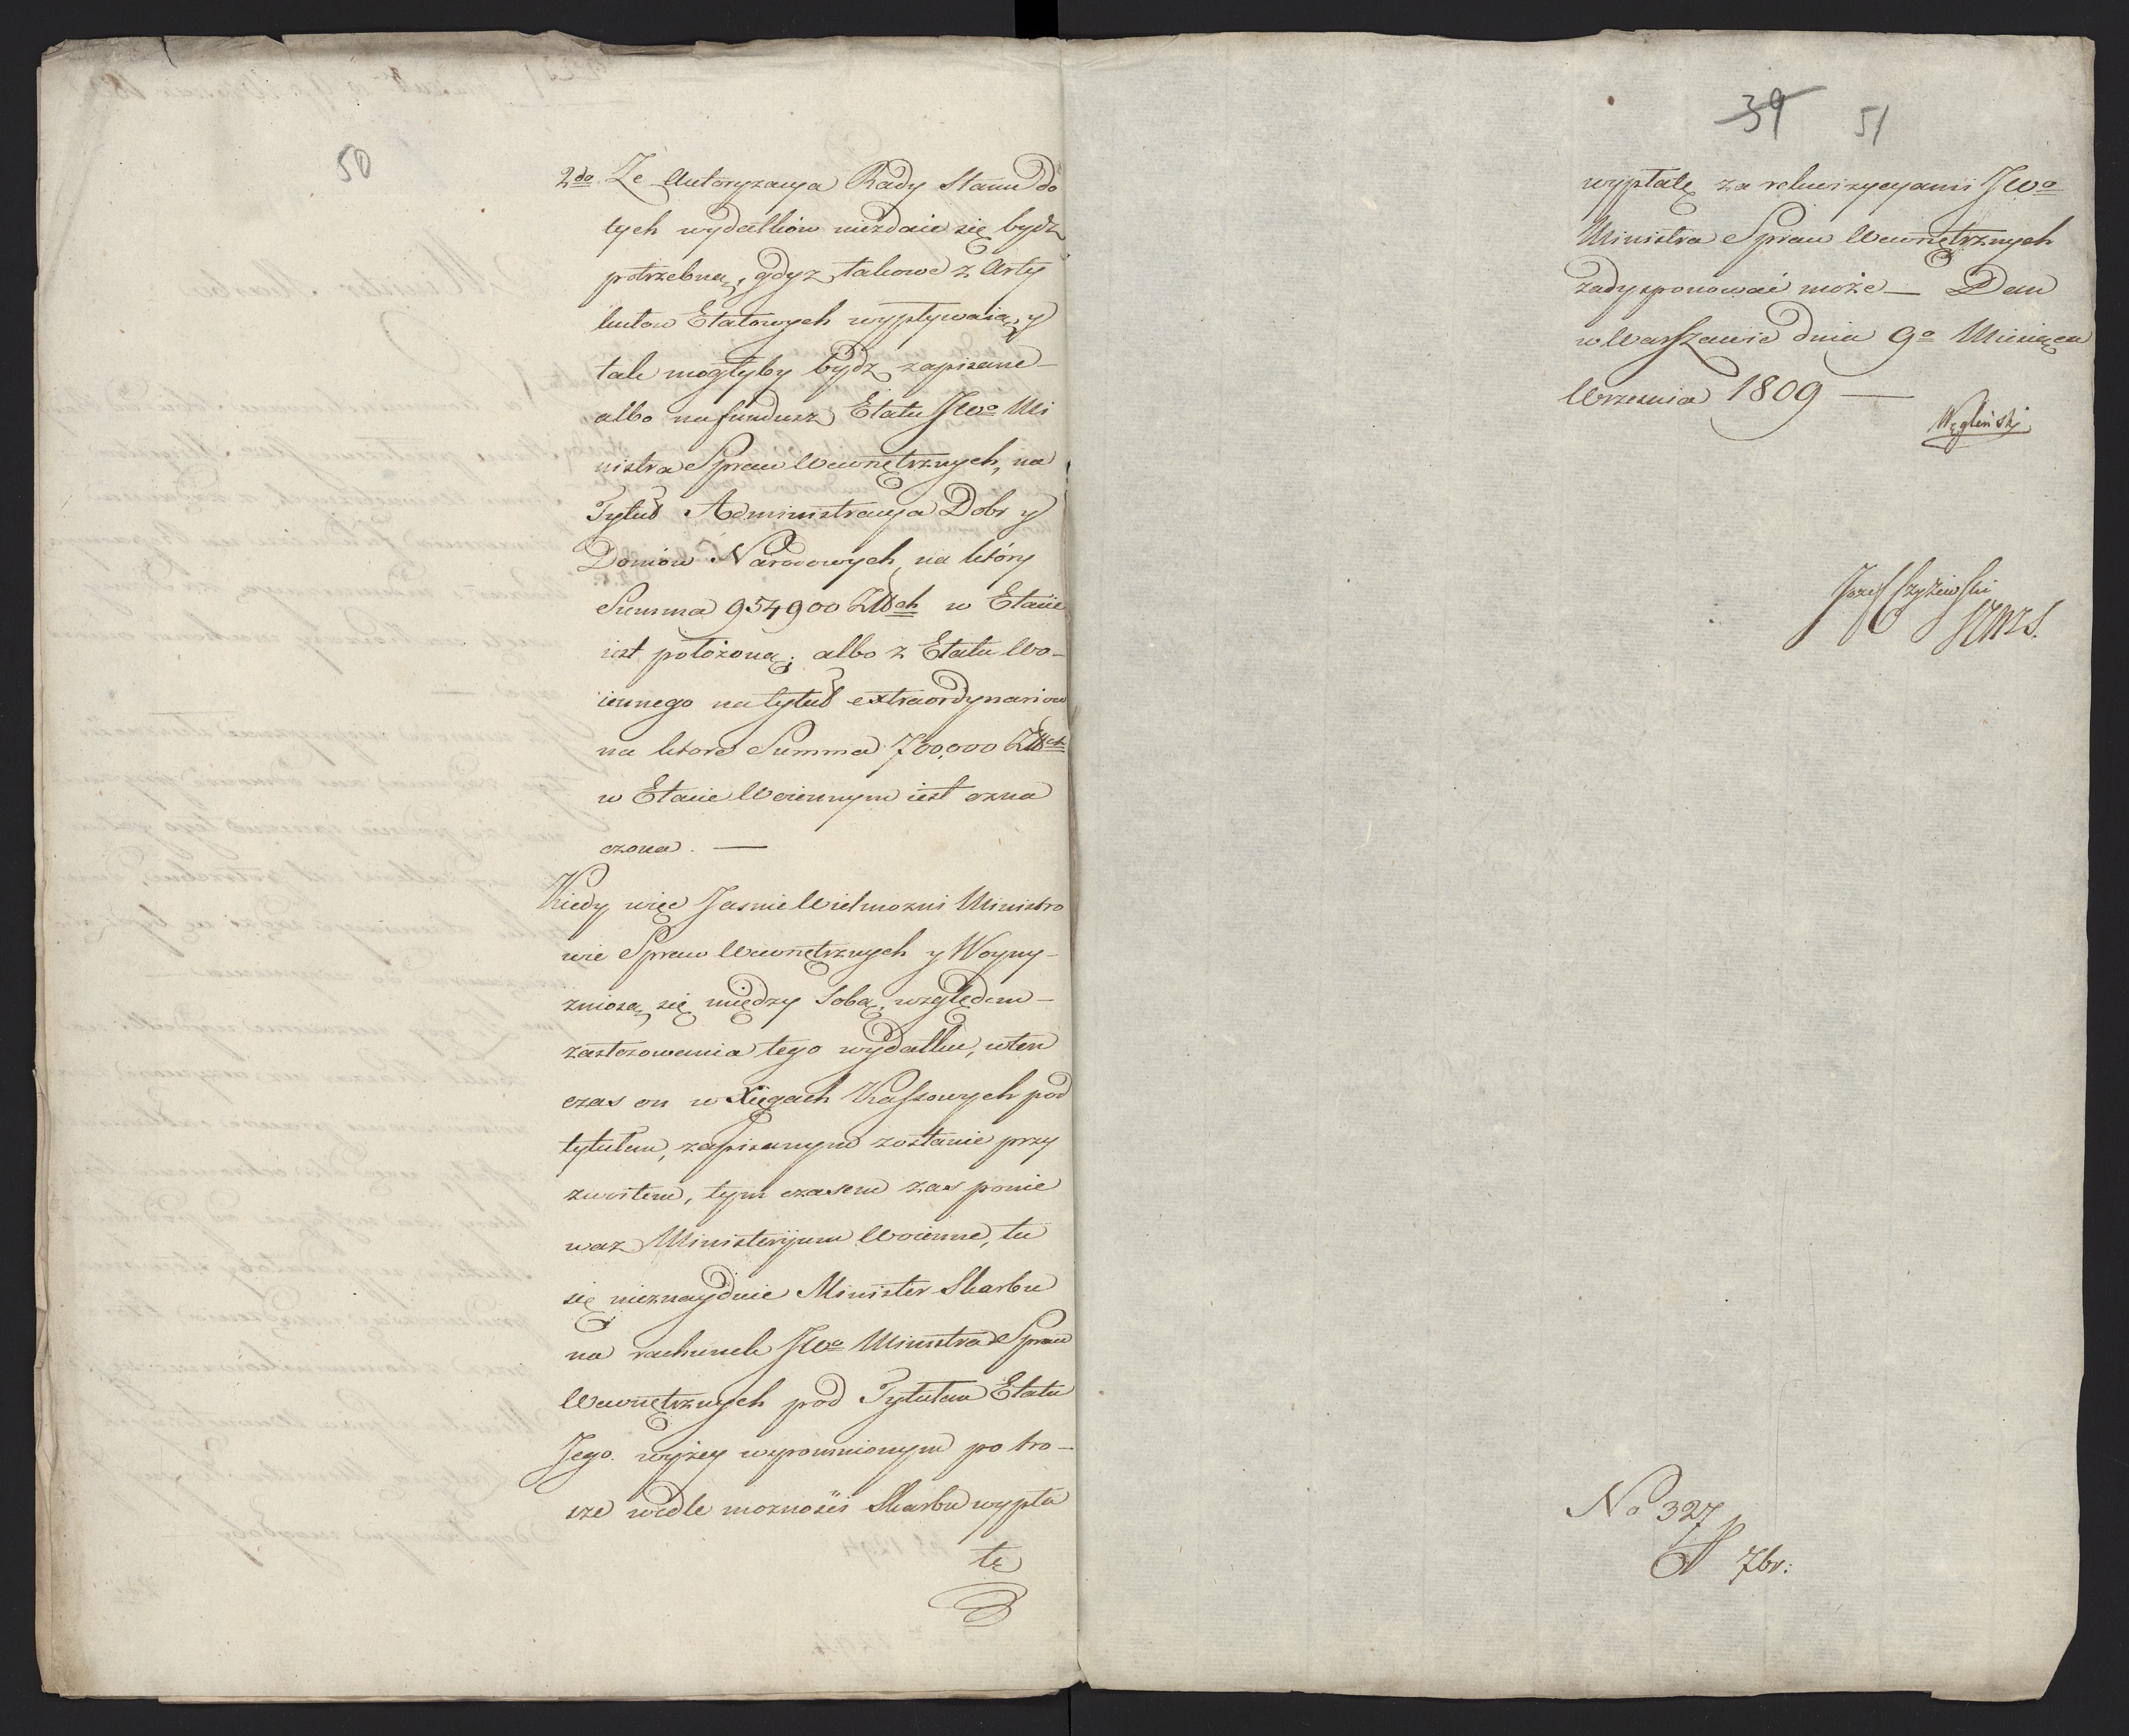 50
2do Ze Autoryzacya Rady Stanu do
tych wydatków niezdaie się bydz
potrzebną, gdyz takowe z Arty
kułow Etatowych wypływaią, y
tak mogłyby bydz zapisane –
albo na fundusz Etatu JWo Mi
nistra Spraw Wewnętrznych, na
Tytuł Administracya Dobr y
Domów Narodowych, na który
Summa 954900 Złłch w Etacie
iest położoną; albo z Etatu Wo-
iennego na tytuł extraordynariow
na które Summa 700,000 Złłch
w Etacie Woiennym iest ozna
czona. —
Kiedy więc Jasnie Wielmozni Ministro
wie Spraw Wewnętrznych y Woyny –
zniosą się między Sobą, względem –
zastosowania tego wydatku, wten
czas on w Xięgach Kassowych pod
tytułem, zapisanym zostanie przy
zwoitem, tym czasem zas ponie
waz Ministeryjum Woienne, tu
się nieznayduie Minister Skarbu
na rachunek JWo Ministra Spraw
Wewnętrznych pod Tytułem Etatu
Jego. wyżey wspomnionym po tro-
sze wedle moznosci Skarbu wypła
tę
39 51
wypłatę za rekwizycyami JWo
Ministra Spraw Wewnętrznych
zadysponować może — Dan
w Warszawie dnia 9o Miesiąca
Września 1809 —
Węgleński
Jozef Czyżewski
No 327
7br: